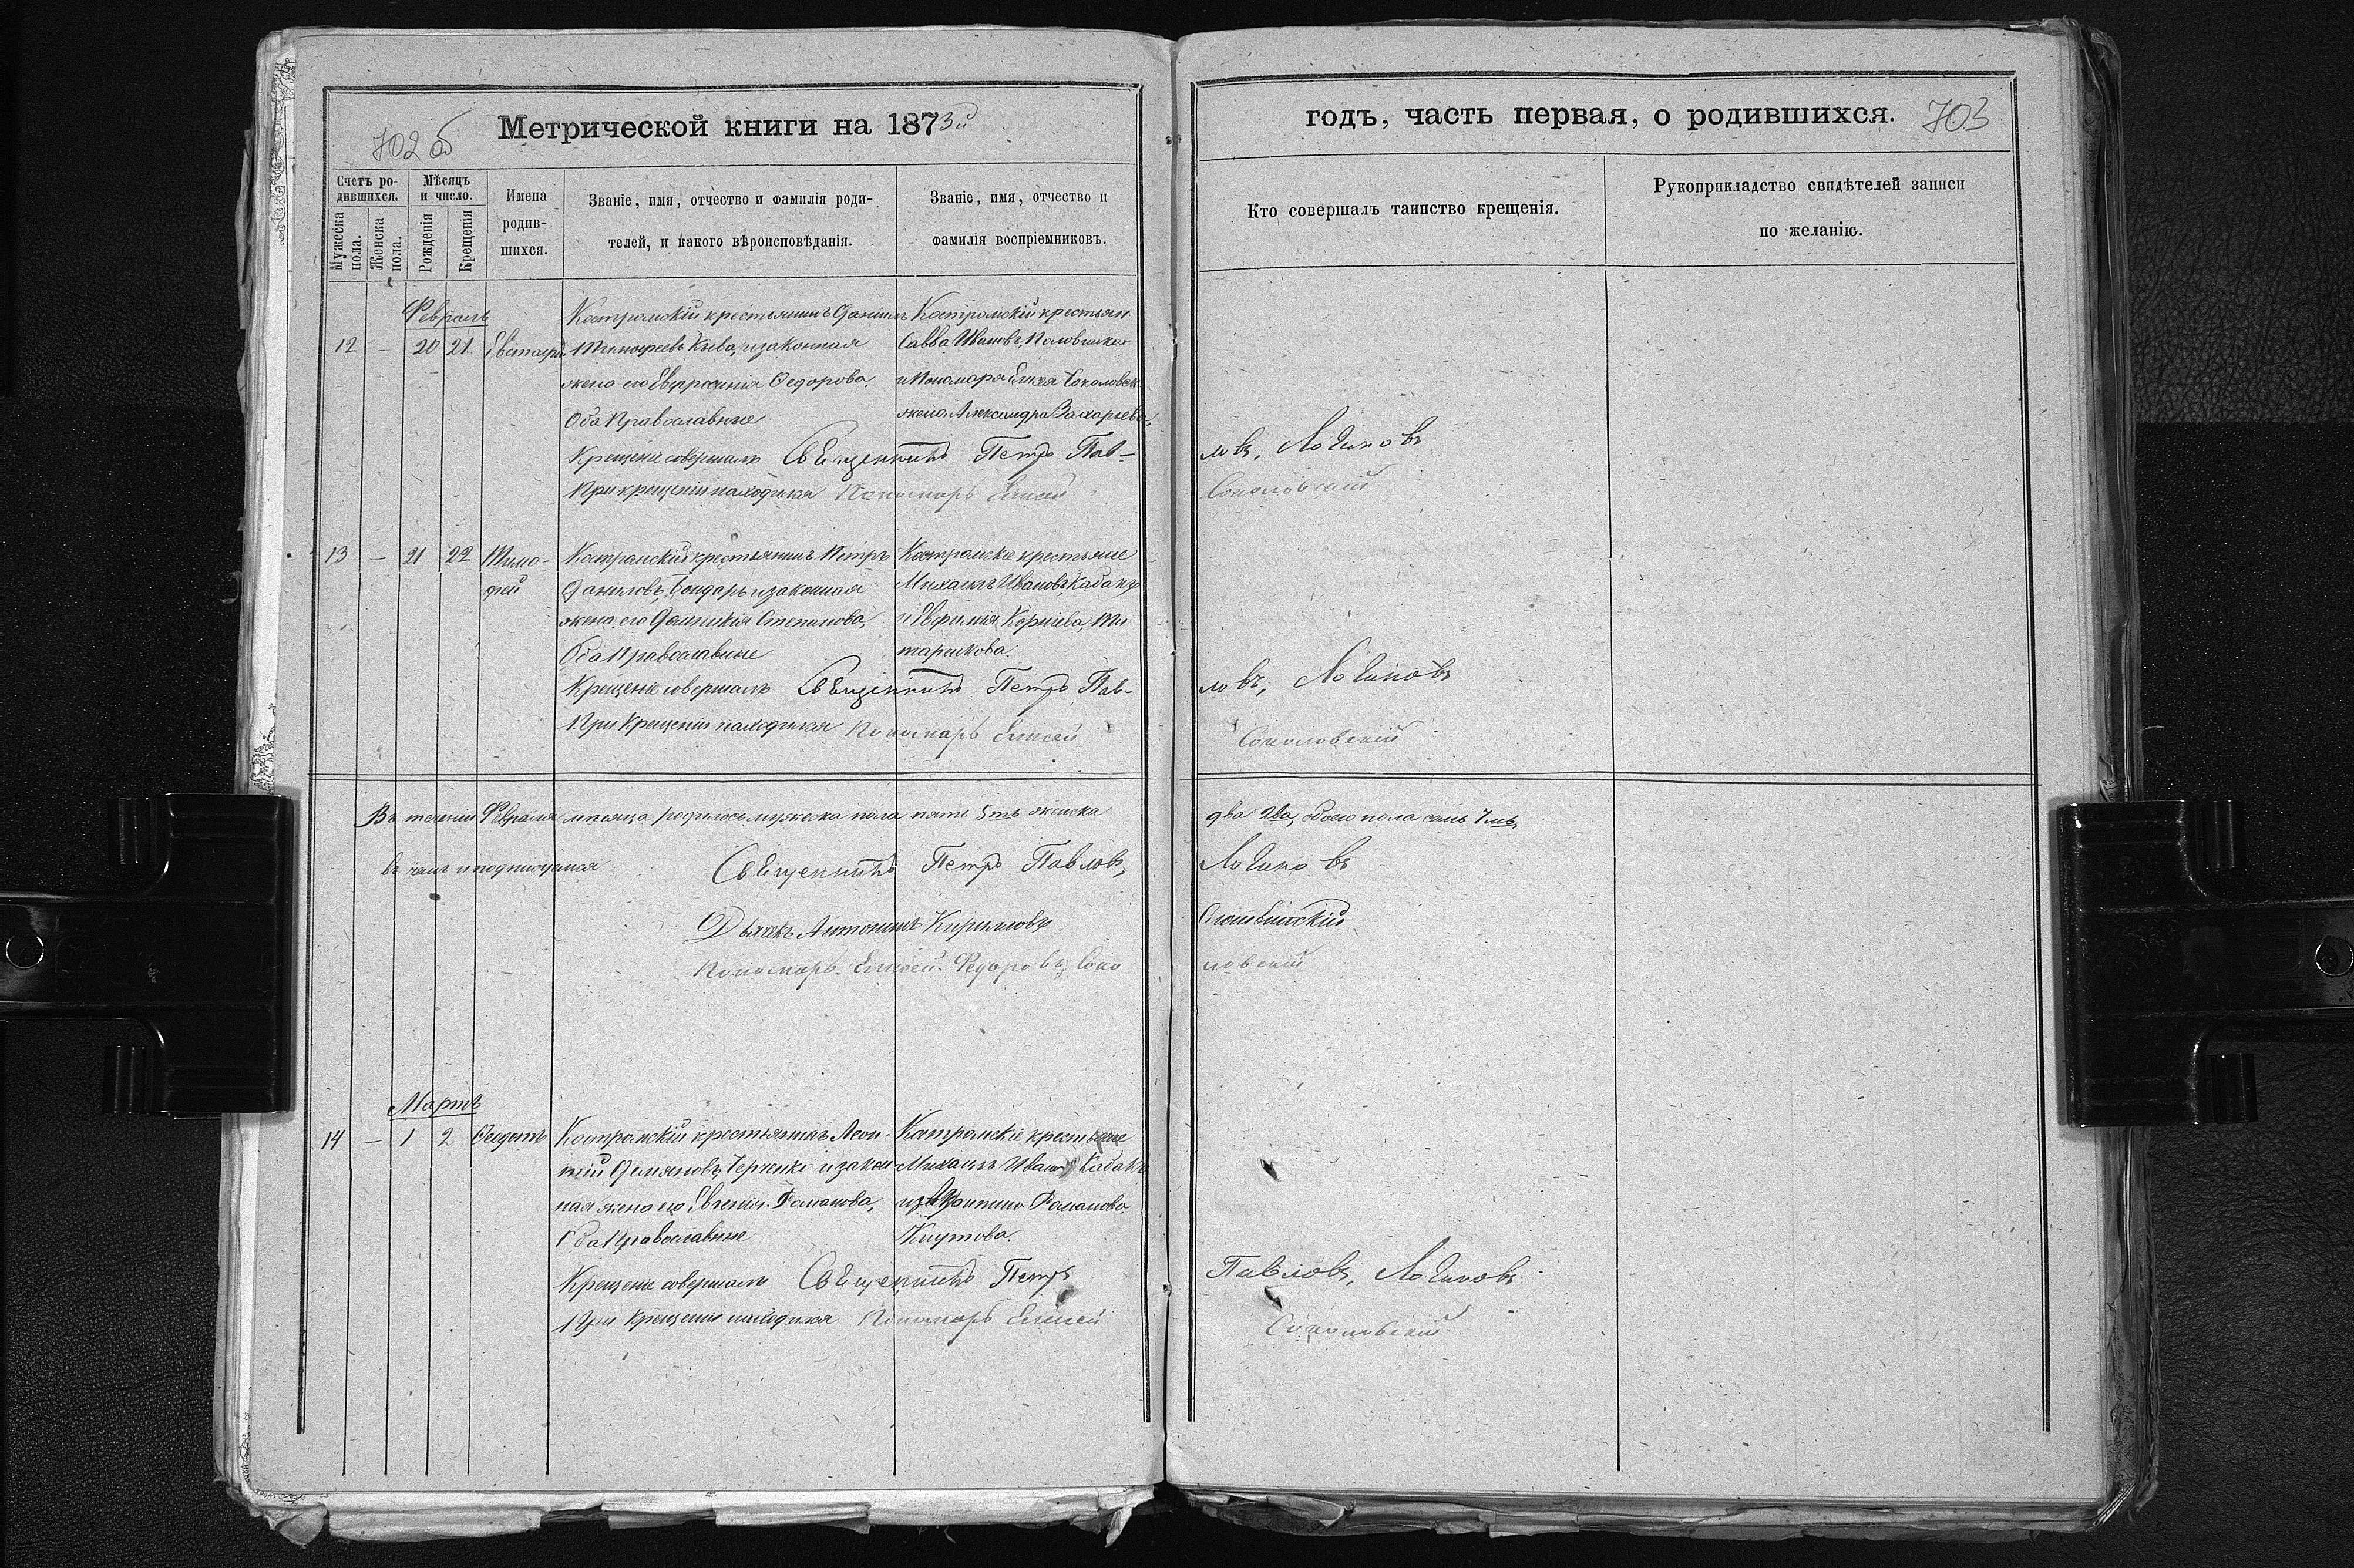 702 об
Метрической книги на 1873й
годъ, часть первая, о родившихся.
703
Счетъ ро-
дившихся.
Мужеска
пола.
Женска
пола.
Мѣсяцъ
и число.
Рожденія
Крещенія
Имена
родив-
шихся.
Званіе, имя, отчество и фамилія роди-
телей, и какого вѣроисповѣданія.
Званіе, имя, отчество и
фамилія воспріемниковъ.
Кто совершалъ таинство крещенія.
Рукоприкладство свидѣтелей записи
по желанію.
Февраль
12 – 20 21 Евстафій
Костромскій крестьянинъ Даніилъ
Тимофеевъ и законная
жена его Евфросинія Федорова,
Оба Православные
Костромскій крестьян
Савва Ивановъ
и Пономаря Елисея Соколовск
жена Александра Захарьева
Крещеніе совершалъ Священникъ Петръ Пав-
ловъ, Логиновъ
При крещеніи находился Пономарь Елисей
Соколовскій
13 – 21 22 Тимо-
фей
Костромскій крестьянинъ Петръ
Даниловъ, Бондарь и законная
жена его Домникія Степанова,
Оба Православные
Костромскіе крестьяне
Михаилъ Ивановъ, Кабакъ
и Евфимія Корніева, Ти
таренкова.
Крещеніе совершалъ Священникъ Петръ Пав-
ловъ, Логиновъ
При Крещеніи находился Пономарь Елисей
Соколовскій
Въ теченіи Февраля мѣсяца родилось мужеска пола пять 5ть женска
два 2ва, обоего пола семь 7мь,
въ чемъ и подписуемся
Священникъ Петръ Павловъ,
Логиновъ
Дьячекъ Антонинъ Кирилловъ
Пономарь Елисей Федоровъ Соко
ловскій
Мартъ
14 – 1 2 Феодотъ
Костромскій крестьянинъ Леон-
тій Демяновъ, и закон
ная жена его Евгенія Романова,
Оба Православные
Костромскіе крестьяне
Михаилъ Ивановъ Кабакъ
Романова
Кнутова.
Крещеніе совершалъ Священникъ Петръ
Павловъ, Логиновъ
При Крещеніи находился Пономарь Елисей
Соколовскій